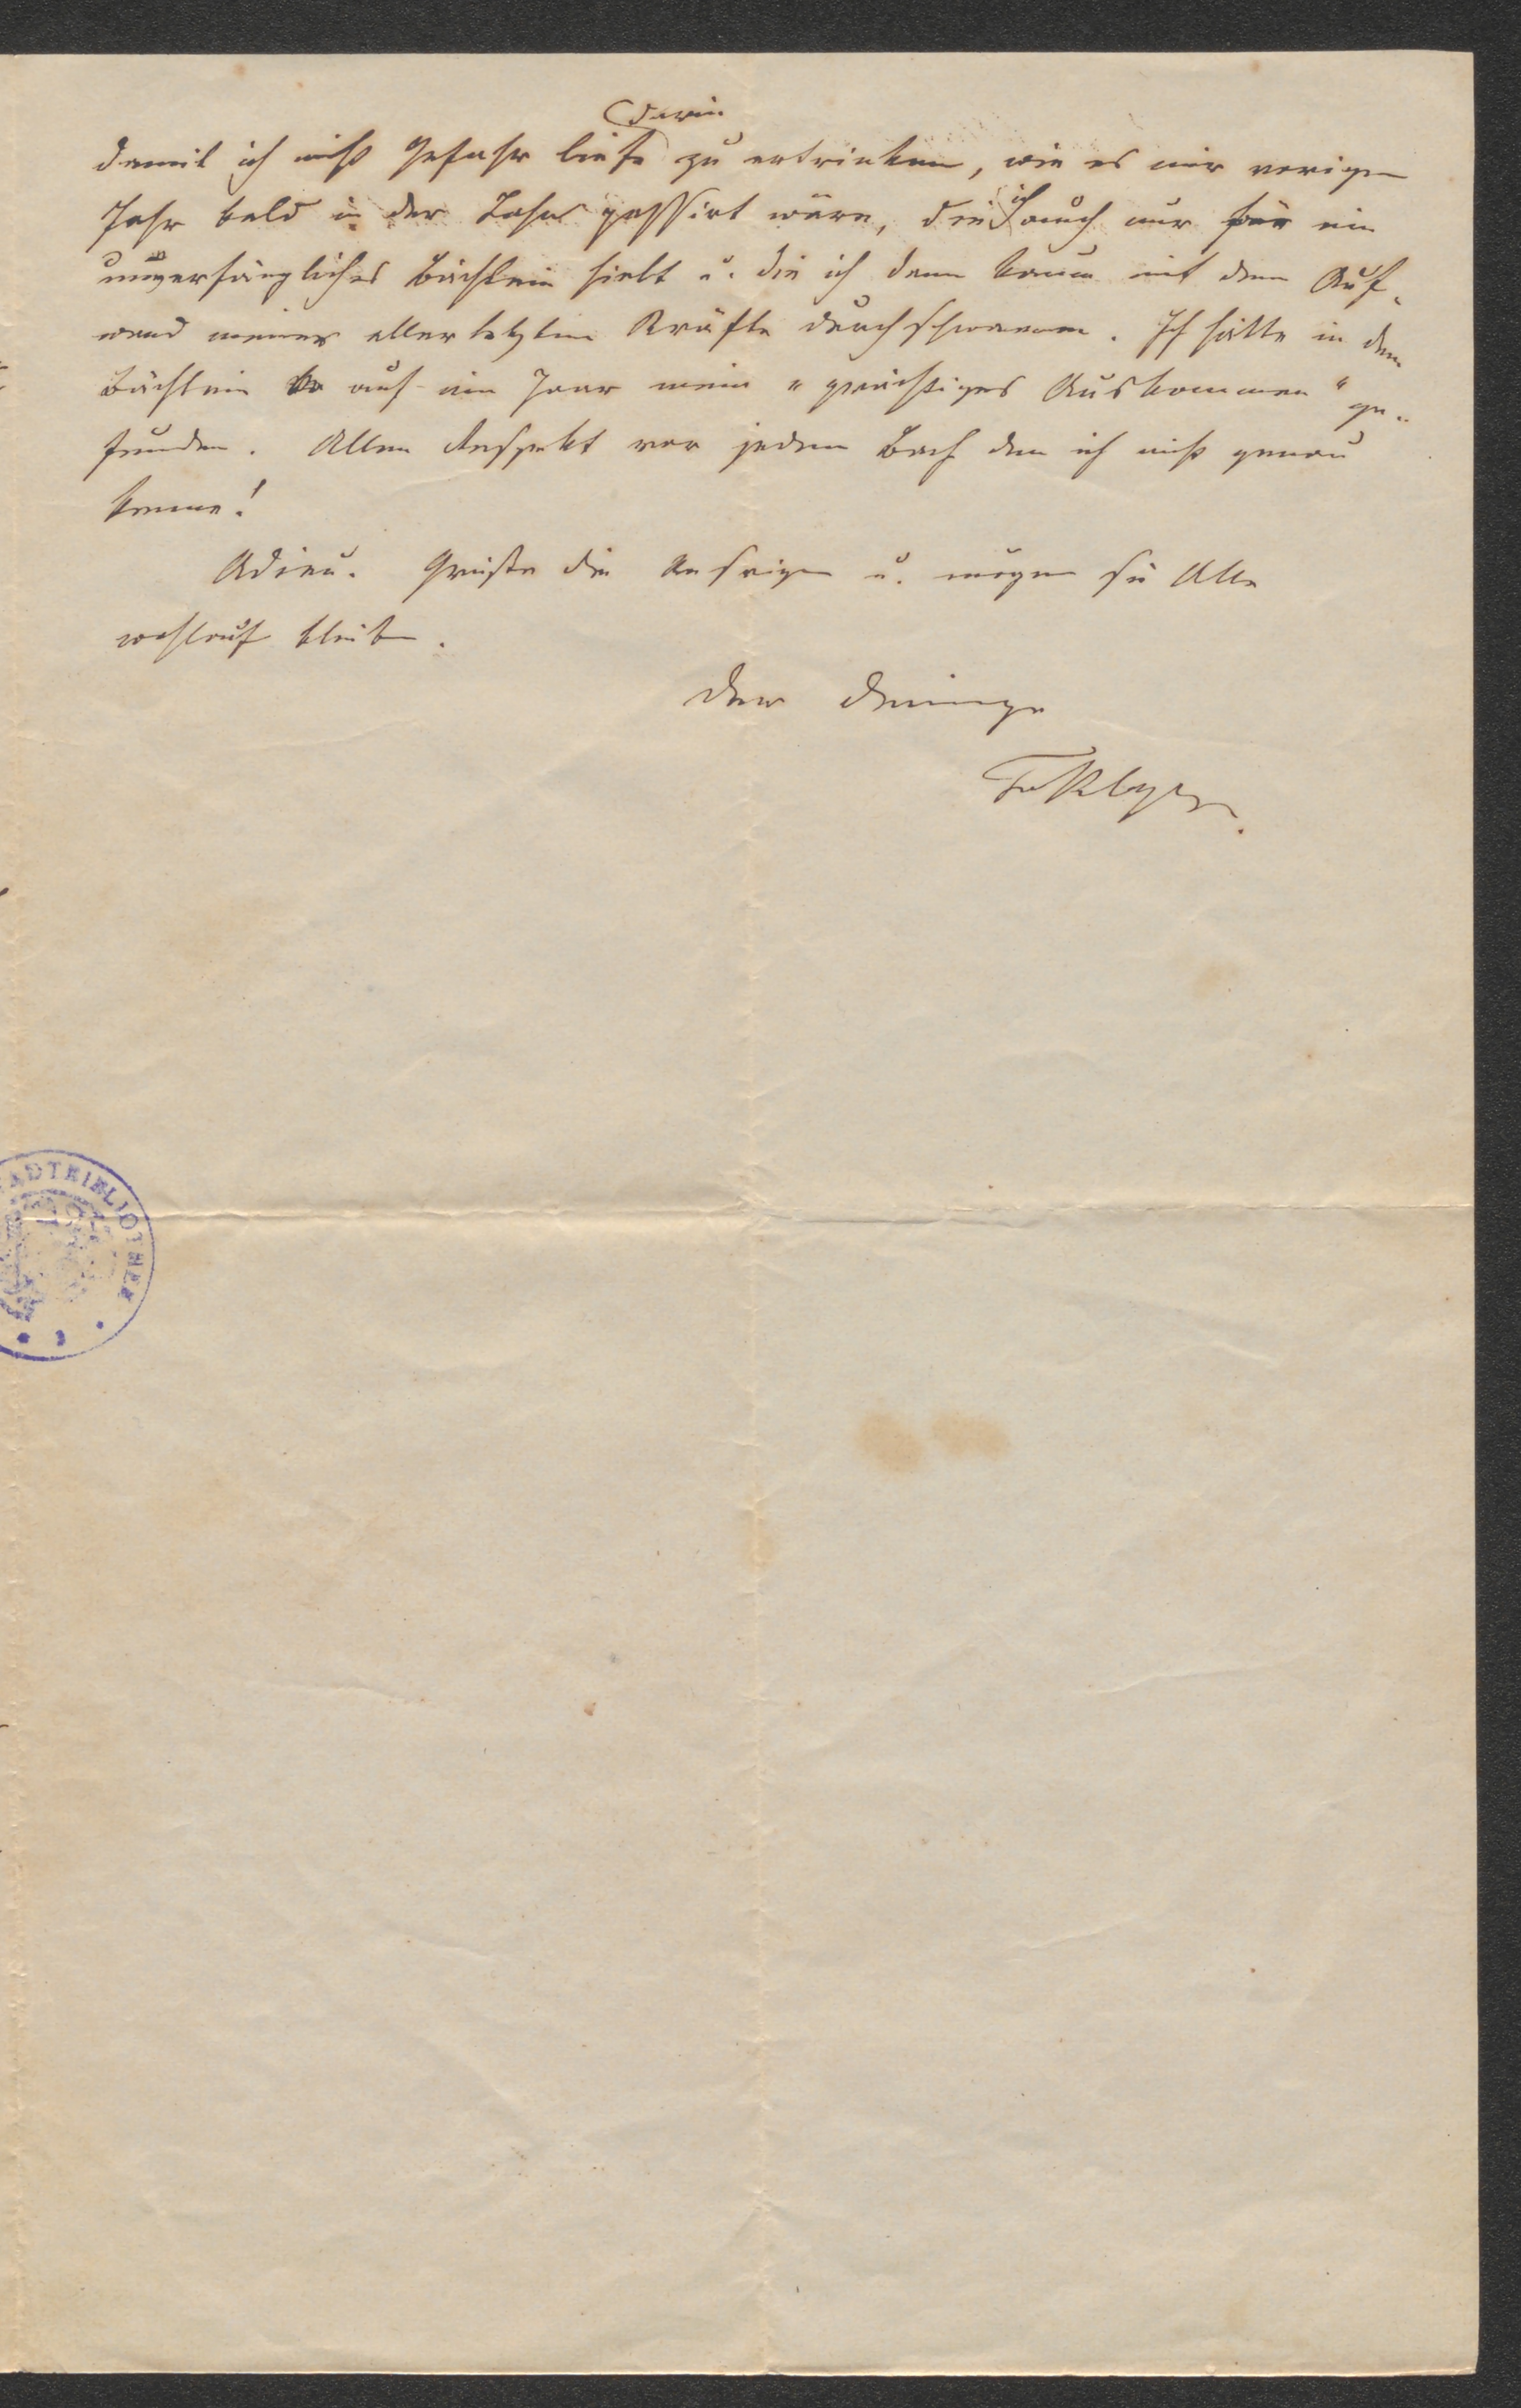 darin
damit ich nicht Gefahr liefe zu ertrinken, wie es mir vorigen
Jahr bald in der Lahn passirt wäre, die ich auch nur für ein
unverfängliches Bächlein hielt u. die ich dann kaum mit dem Auf-
wand meiner allerletzten Kräfte durchschwamm. Ich hätte in dem
Bächlein auf ein Haar mein "gewichtiges Auskommen" ge-
funden. Allen Respekt vor jedem Bach den ich nicht genau
kenne!
Adieu. Grüße die u. mögen sie Alle
wohlauf bleiben.
Der Deinige
STADTBIBLIOTHEK